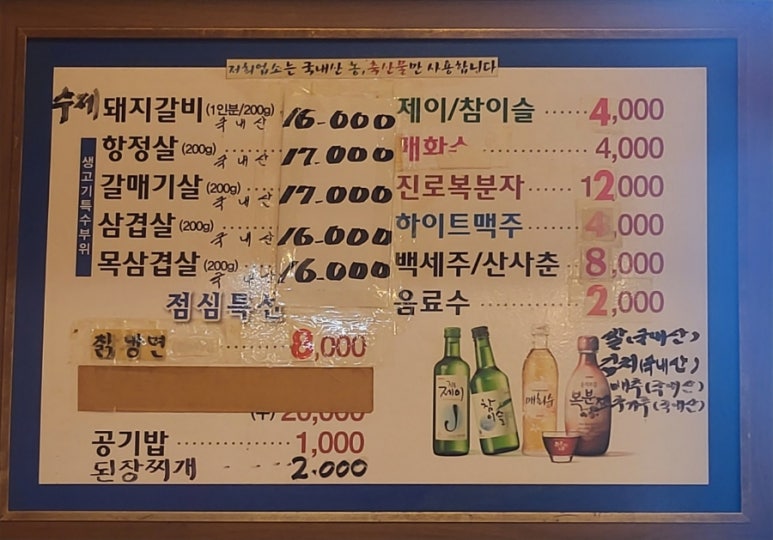 저희업소는 국내산 농,축산물만 사용합니다
수제 돼지갈비 (1인분/200g) 국내산 16-000
생고기특수부위
항정살 (200g) 국내산 17-000
갈매기살 (200g) 국내산 17-000
삼겹살 (200g) 국내산 16-000
목삼겹살 (200g) 16-000
점심특선
칡냉면 8,000
20,000
공기밥 1,000
된장찌개 2.000
제이/참이슬 4,000
매화수 4,000
진로복분자 12,000
하이트맥주 4,000
백세주/산사춘 8,000
음료수 2,000
제이
J
참이슬
매화수
복분
쌀(국내산)
김치(국내산)
배추(국내산)
고추가루(국내산)